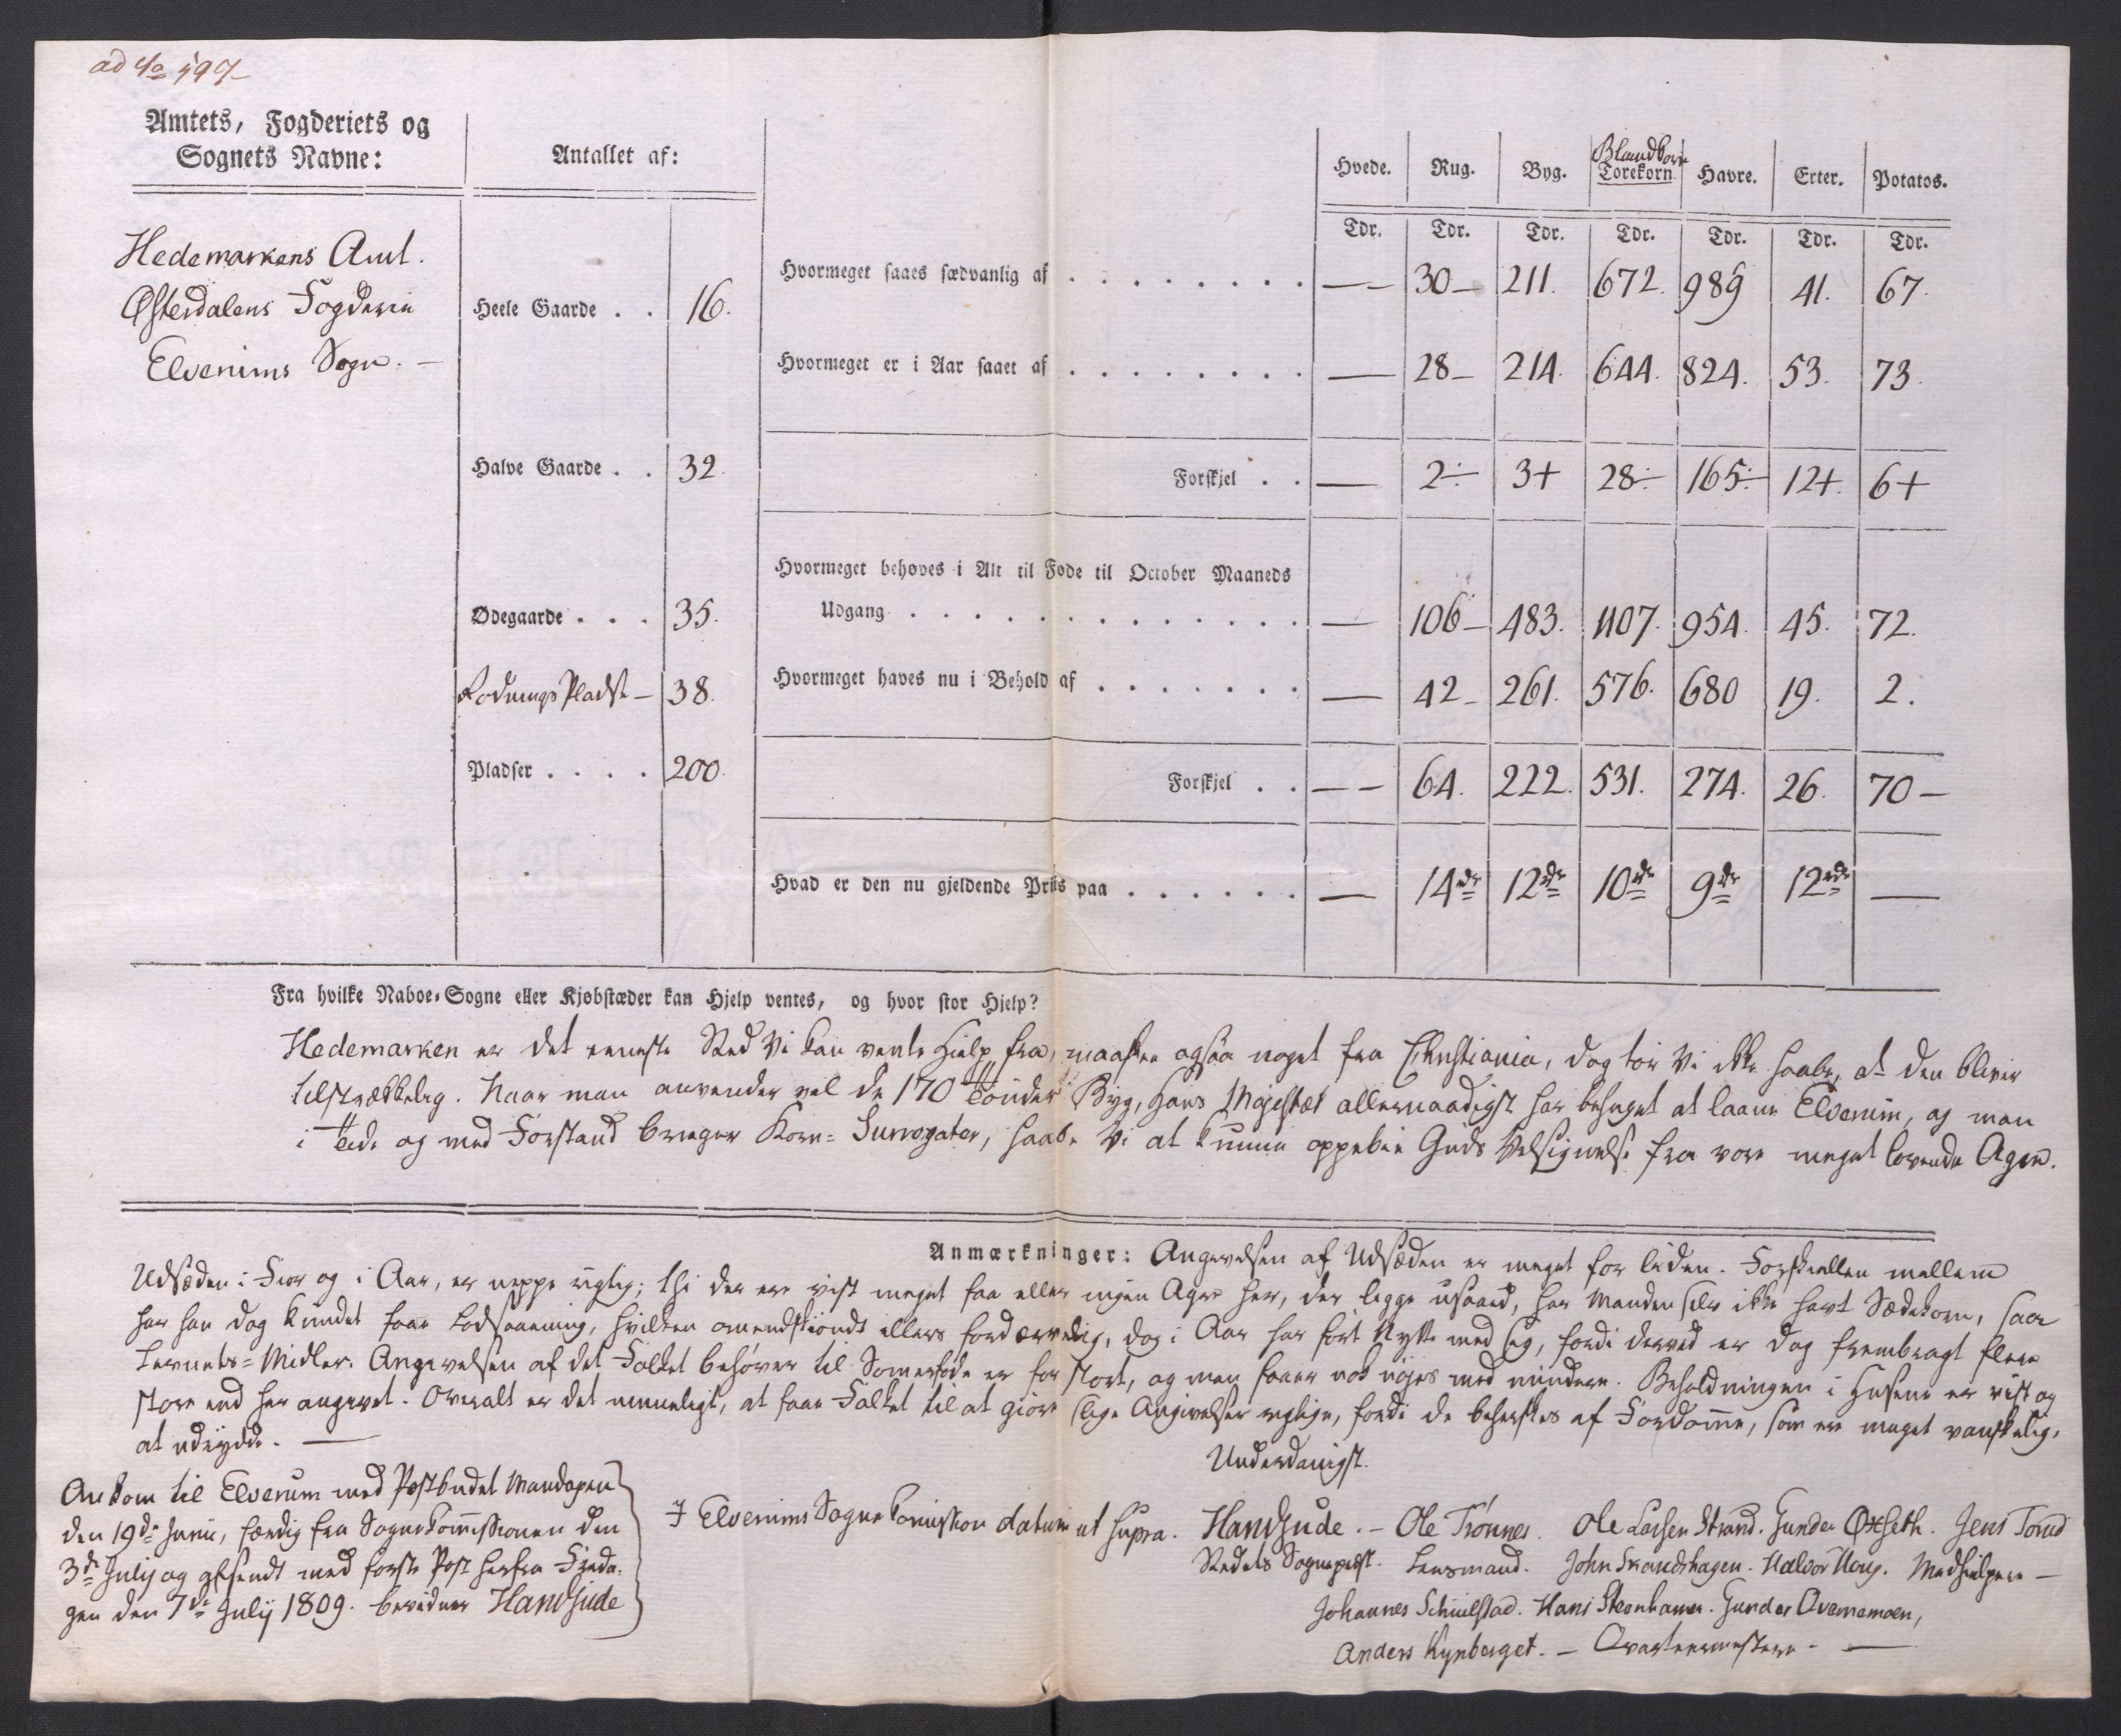 ad No 597
Amtets, Fogderiets og
Sognets Navne:
Antallet af:
Hvede. Rug. Byg. Blandkorn Torekorn. Havre. Erter. Potatos.
Tdr. Tdr. Tdr. Tdr. Tdr. Tdr. Tdr.
Hedemarkens Amt.
Østerdalens Fogderie
Elverums Sogn. —
Heele Gaarde . . 16.
Halve Gaarde . . 32
Ødegaarde . . . 35.
Rødnings Pladse — 38.
Pladser . . . . 200.
Hvormeget saaes sædvanlig af . . . . . . . . — — 30 — 211. 672. 989 41. 67.
Hvormeget er i Aar saaet af . . . . . . . . — 28 — 214. 644. 824. 53. 73.
Forskjel . . — 2÷ 3+ 28÷ 165÷ 12+. 6+
Hvormeget behøves i Alt til Føde til October Maaneds
Udgang . . . . . . . . . . . . . — 106 — 483. 1107. 954. 45. 72.
Hvormeget haves nu i Behold af . . . . . . . — 42 — 261. 576. 680 19. 2.
Forskjel . . — — 64. 222. 531. 274. 26. 70 —
Hvad er den nu gjeldende Priis paa . . . . . . — 14 rdr 12 rdr 10 rdr 9 rdr 12 rdr —
Fra hvilke Naboe-Sogne eller Kjøbstæder kan Hjelp ventes, og hvor stor Hjelp?
Hedemarken er det eeneste Sted Vi kan vente Hielp fra, maaskee ogsaa noget fra Christiania, dog tør Vi ikke haabe, at den bliver
tilstrækkelig. Naar man anvender vel de 170 Tønder Byg, Hans Majestæt allernaadigst har behaget at laane Elverum, og man
i Tide og med Forstand bruger Korn-Surrogater, haabe Vi at kunne oppebie Guds Velsignelse fra vore meget lovende Agre.
Anmærkninger: Angivelsen af Udsæden er meget for liden. Forskiellen mellem
Udsæden i Fior og i Aar, er neppe rigtig; thi der ere vist meget faa eller ingen Agre her, der ligge usaaed, har Manden selv ikke havt Sædekorn, saa
har han dog kundet faae Lodsaaening, hvilken omendskiøndt ellers fordærvelig, dog i Aar har ført Nytte med sig, fordi derved er dog frembragt flere
Levnets-Midler. Angivelsen af det Folket behøver til Somerføde er for stort, og man faaer nok nøjes med mindere. Beholdningen i Husene er vist og
større end her angivet. Overalt er det umueligt, at faae Folket til at giøre slige Angivelser rigtige, fordi de beherskes af Fordomme, som ere meget vanskelig,
at udrydde. —
Underdanigst.
Ankom til Elverum med Postbudet Mandagen
den 19de Junii, færdig fra SogneKomissionen den
3de Julij og afsendt med første Post herfra Freda-
gen den 7de Julij 1809. bevidner HansJude
I Elverums SogneComission datum ut supra. HansJude. — Ole Trønnes. Ole Larsen Strand. Gunder Øxseth. Jens
Stedets Sognepræst. Lensmand. John Strandshagen. Halvor Moe. Medhielpere —
Johannes Schiulstad. Hans Steenhamer. Gunder Overnemoen,
Anders Kynberget. — Qvarteermestere. —